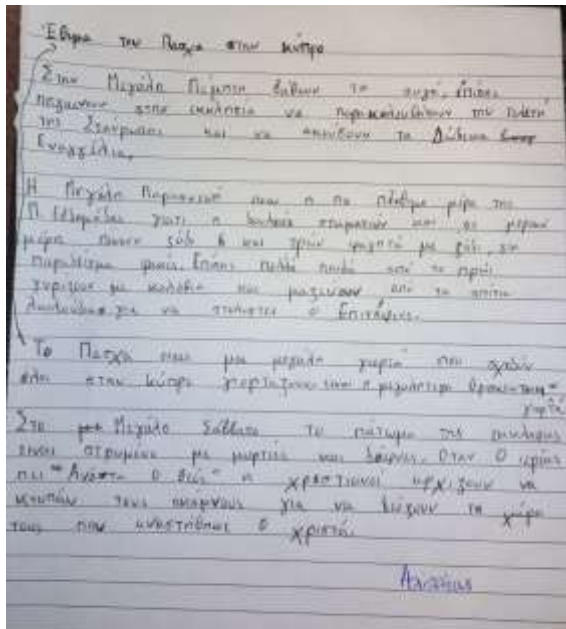 Έθιμα του Πασχα στην κύπρο
Στην Μεγάλη Πέμπτη βάθουν τα αυγά, επίσης
πηγαίνουν στην εκκλησία να παρακολουθήσουν την τελετή
της Σταύρωσης και να ακούσουν τα Δώδεκα
Ευαγγέλια.
Η Μεγάλη Παρασκευή ειναι η πο πένθιμη μέρα της
Μ. Εβδομάδας γιατί η δουλειά σταματούν και σε μερικά
μέρη πίνουν ξύδι και τρώνε φαγητά με ξύδι, για
παράδειγμα φακές. Επίσης πολλά παιδιά από το πρωί
γυρίζουν με καλάθια και μαζεύουν από τα σπίτια
λουλούδια για να στολιστεί ο Επιτάφιος.
Το Πασχα ειναι μια μεγάλη γιορτή που σχεδόν
όλοι στην κύπρο γιορτάζουν ειναι η μεγαλύτερη θρησκευτική
γιορτή
Στο Μεγάλο Σάββατο το πάτωμα της εκκλησίας
ειναι στρωμένο με μυρτιές και δάφνες. Όταν Ο ιερέας
πει "Ανάστα ο θεός" η χρηστιανοί αρχίζουν να
κτυπούν τους σκάμνους για να δείξουν τη χαρά
τους που αναστήθηκε ο χριστός.